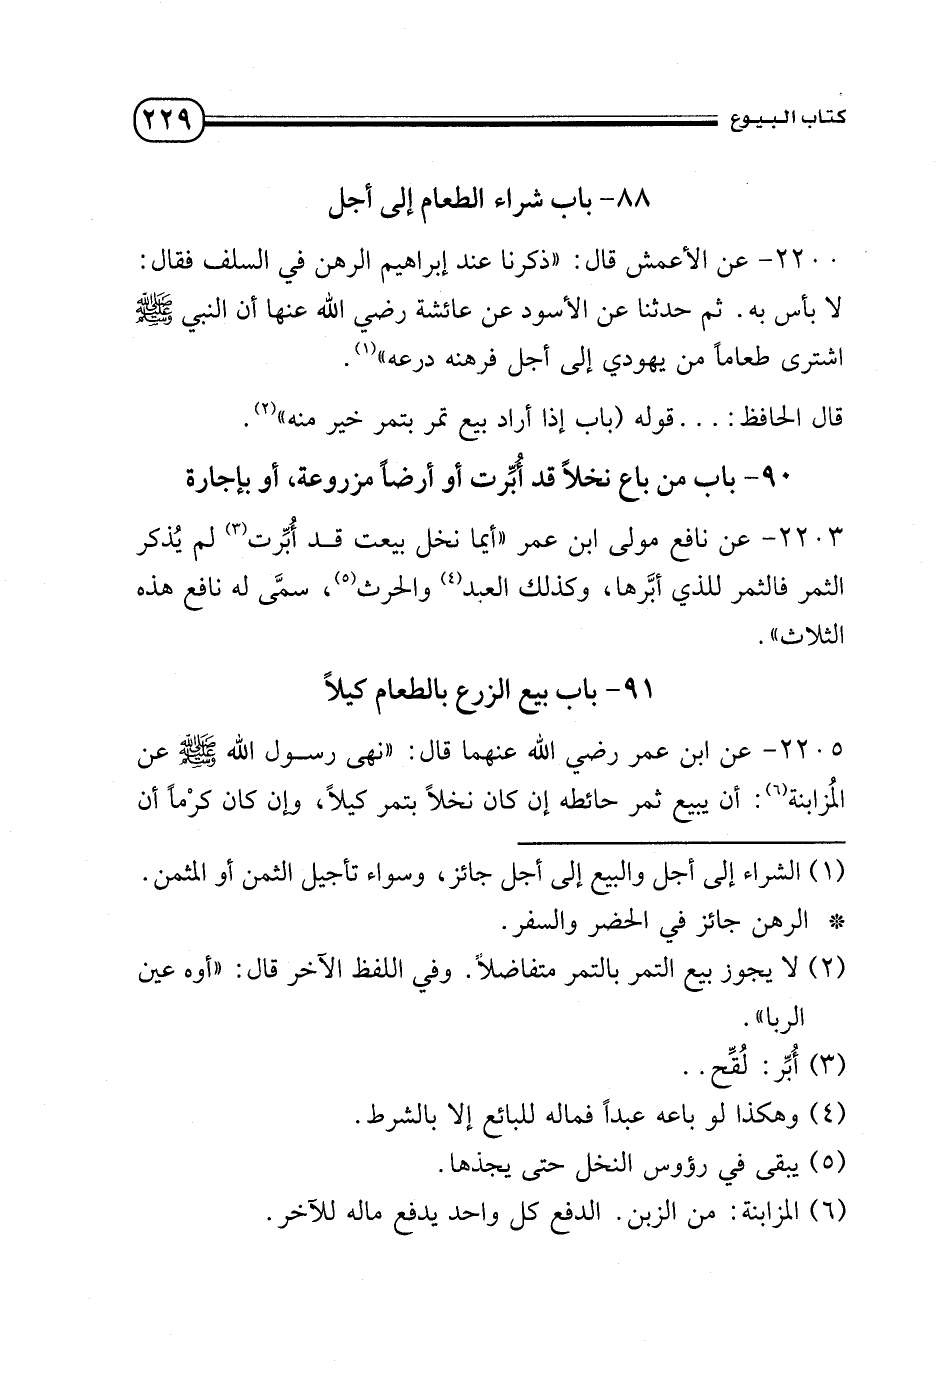 كتاب البيوع ٢٢٩
٨٨- باب شراء الطعام إلى أجل
٢٢٠٠- عن الأعمش قال: «ذكرنا عند إبراهيم الرهن في السلف فقال:
لا بأس به. ثم حدثنا عن الأسود عن عائشة رضي الله عنها أن النبي ﷺ
اشترى طعاماً من يهودي إلى أجل فرهنه درعه»(١).
قال الحافظ: . . . قوله (باب إذا أراد بيع تمر بتمر خير منه»(٢).
٩٠- باب من باع نخلاً قد أُبِّرت أو أرضاً مزروعة، أو بإجارة
٢٢٠٣- عن نافع مولى ابن عمر «أيما نخل بيعت قد أُبِّرت(٣) لم يُذكر
الثمر فالثمر للذي أبَّرها، وكذلك العبد(٤) والحرث(٥)، سمَّى له نافع هذه
الثلاث».
٩١- باب بيع الزرع بالطعام كيلاً
٢٢٠٥- عن ابن عمر رضي الله عنهما قال: «نهى رسول الله ﷺ عن
المُزابنة(٦): أن يبيع ثمر حائطه إن كان نخلاً بتمر كيلاً، وإن كان كرْماً أن
(١) الشراء إلى أجل والبيع إلى أجل جائز، وسواء تأجيل الثمن أو المثمن.
* الرهن جائز في الحضر والسفر.
(٢) لا يجوز بيع التمر بالتمر متفاضلاً. وفي اللفظ الآخر قال: «أوه عين
الربا».
(٣) أُبِّر: لُقِّح. .
(٤) وهكذا لو باعه عبداً فماله للبائع إلا بالشرط.
(٥) يبقى في رؤوس النخل حتى يجذها.
(٦) المزابنة: من الزبن. الدفع كل واحد يدفع ماله للآخر.